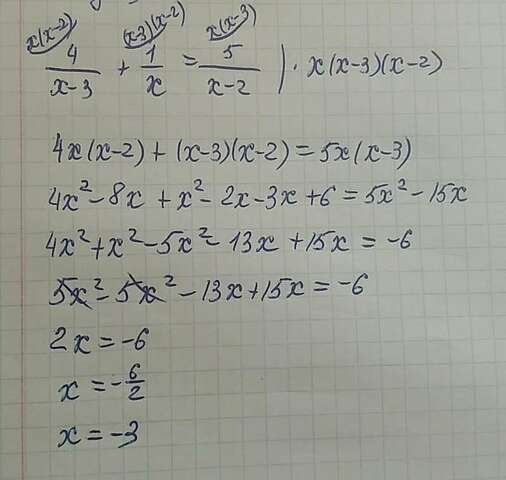 x(x-2) (x-3)(x-2) x(x-3)
4/(x-3) + 1/x = 5/(x-2) | · x(x-3)(x-2)
4x(x-2) + (x-3)(x-2) = 5x(x-3)
4x² - 8x + x² - 2x - 3x + 6 = 5x² - 15x
4x² + x² - 5x² - 13x + 15x = -6
5x² - 5x² - 13x + 15x = -6
2x = -6
x = -6/2
x = -3